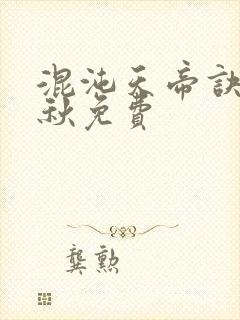 混沌天帝訣
秋免費
龔勲